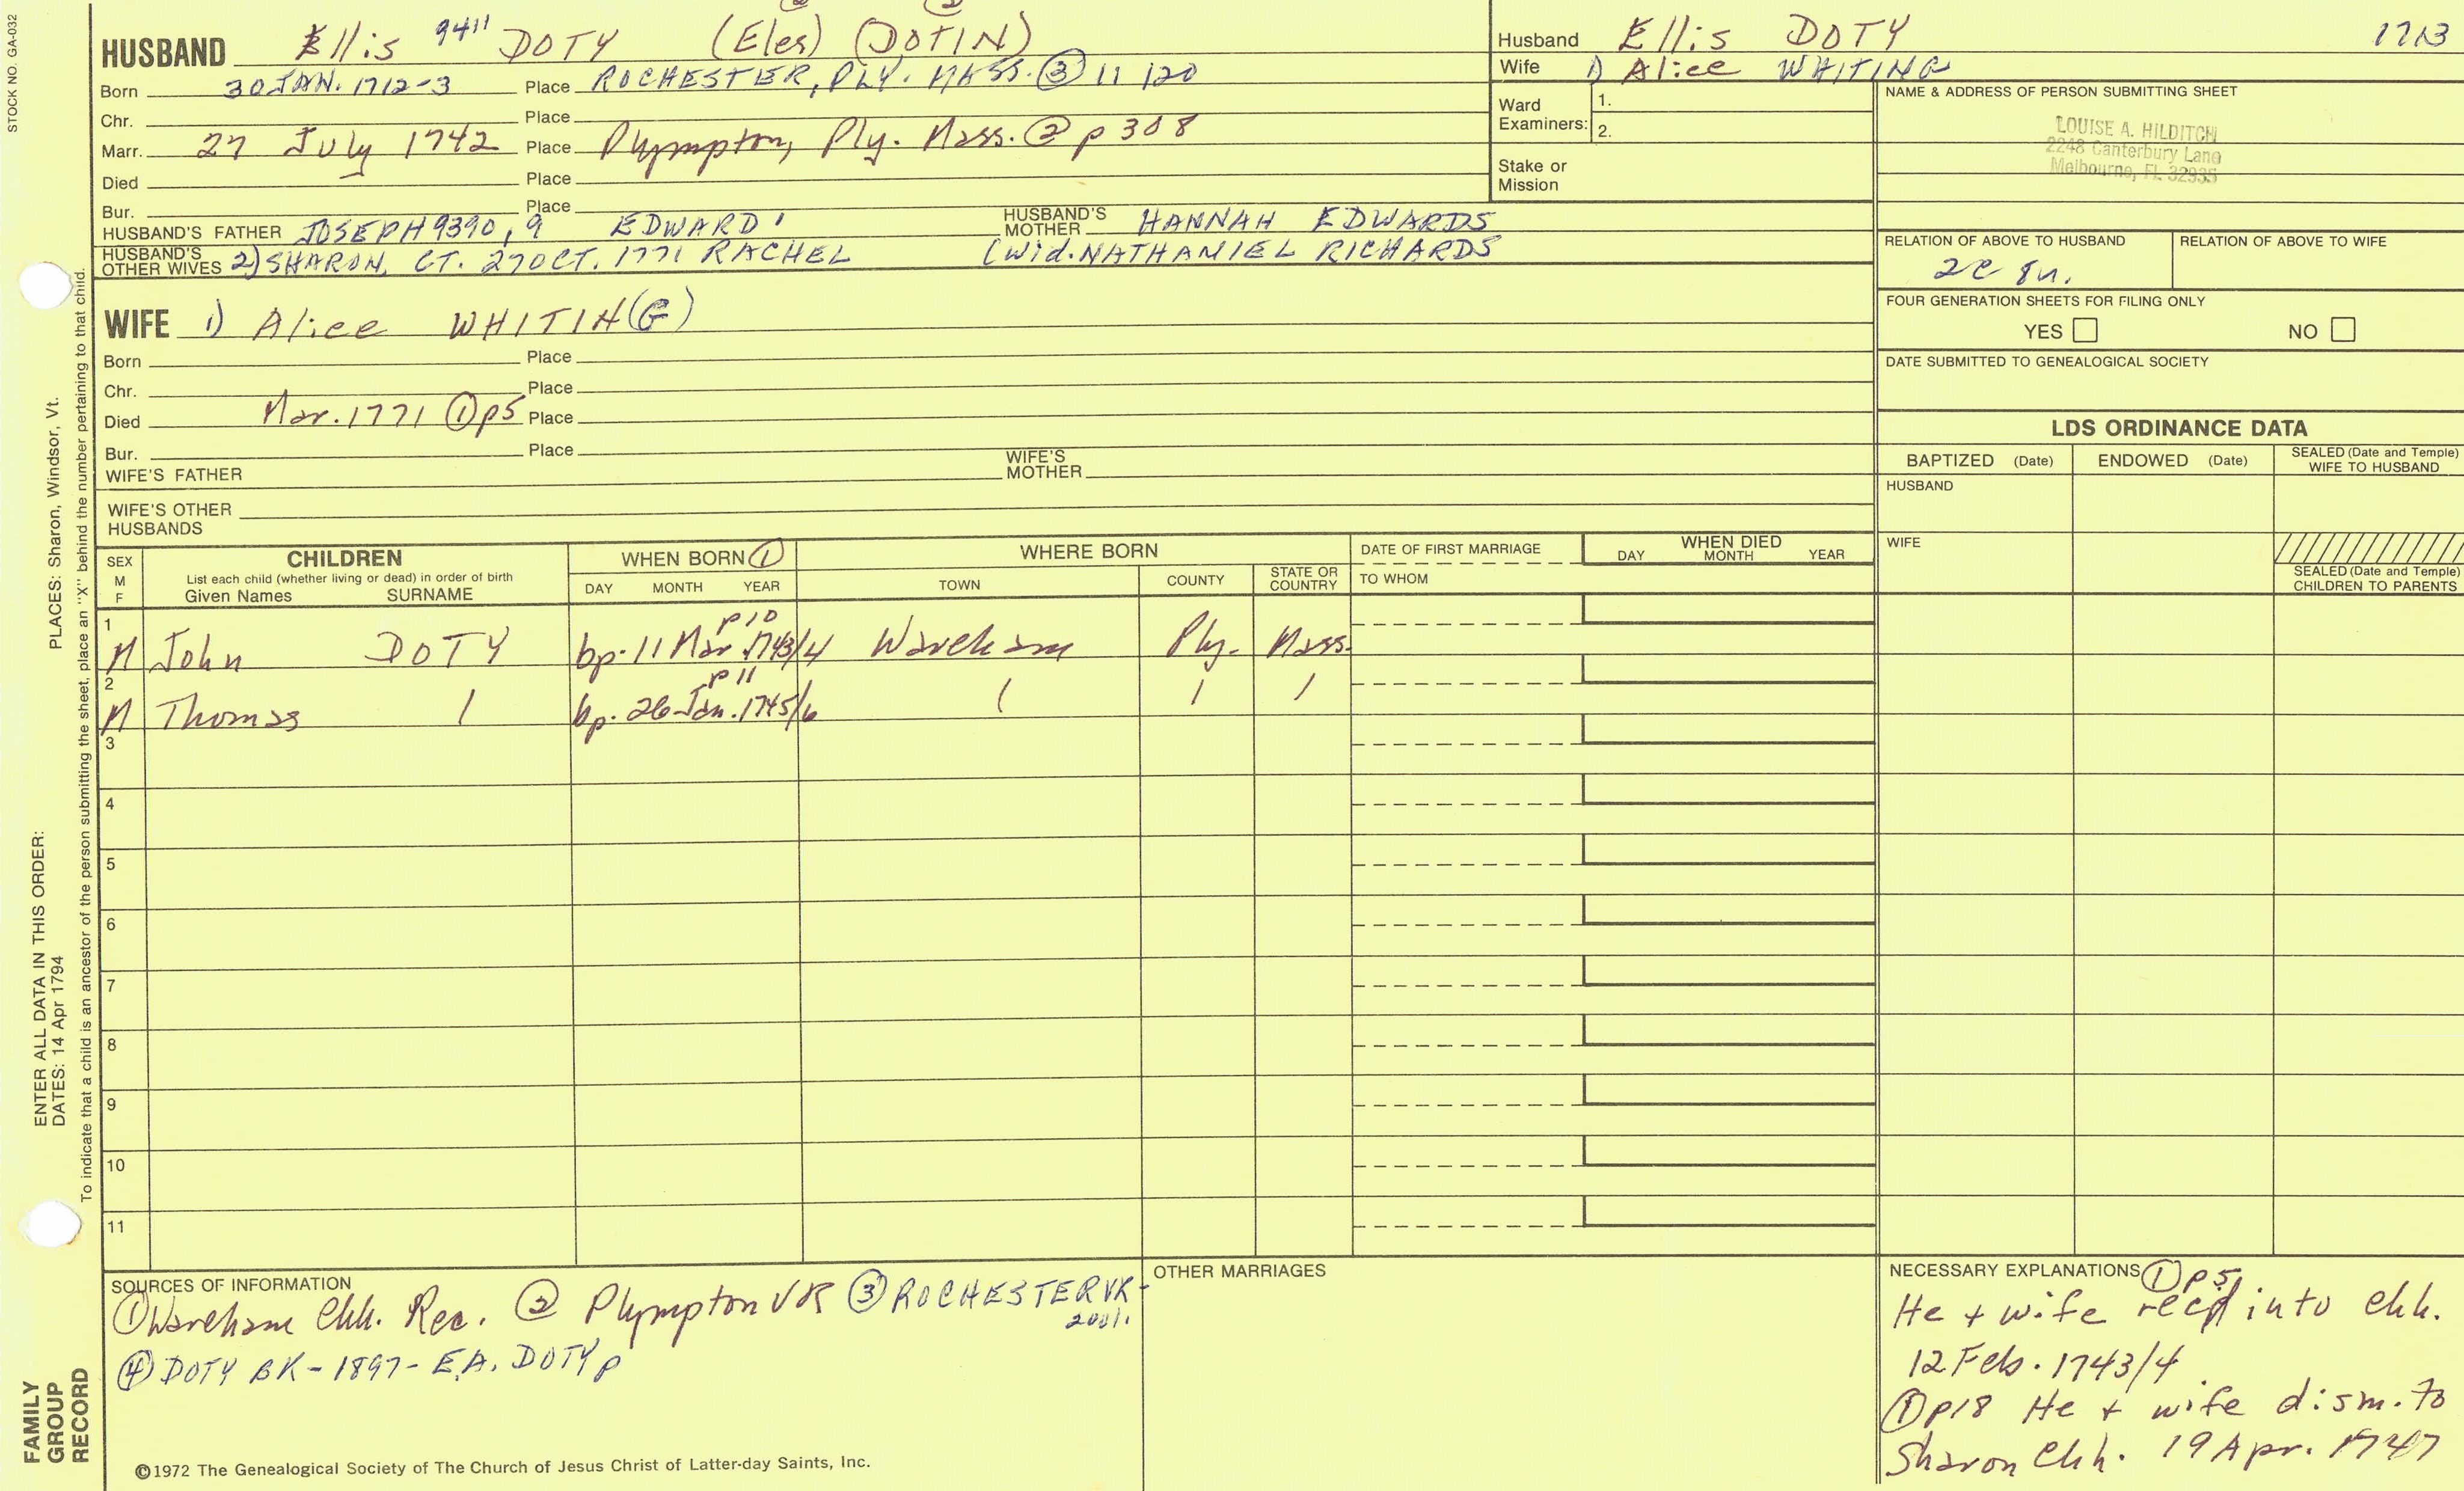 STOCK NO. GA-032
HUSBAND Ellis 9411 DOTY (Eles) (DOTIN)
Born 30 JAN. 1712-3 Place ROCHESTER, PLY. MASS. ③ 11 120
Chr. Place
Marr. 27 July 1742 Place Plympton, Ply. Mass. ② p 308
Died Place
Bur. Place
HUSBAND'S FATHER JOSEPH 9390, 9 EDWARD ' HUSBAND'S MOTHER HANNAH EDWARDS
HUSBAND'S OTHER WIVES 2) SHARON, CT. 27 OCT. 1771 RACHEL (Wid. NATHANIEL RICHARDS
Husband Ellis DOTY 1713
Wife 1) Alice WHITING
Ward Examiners: 1.
2.
Stake or Mission
NAME & ADDRESS OF PERSON SUBMITTING SHEET
LOUISE A. HILDITCH
2248 Canterbury Lane
Melbourne, FL 32935
RELATION OF ABOVE TO HUSBAND RELATION OF ABOVE TO WIFE
2c 8n.
FOUR GENERATION SHEETS FOR FILING ONLY
YES NO
DATE SUBMITTED TO GENEALOGICAL SOCIETY
WIFE 1) Alice WHITIN(G)
Born Place
Chr. Place
Died Mar. 1771 ① p5 Place
Bur. Place
WIFE'S FATHER WIFE'S MOTHER
WIFE'S OTHER HUSBANDS
LDS ORDINANCE DATA
BAPTIZED (Date) ENDOWED (Date) SEALED (Date and Temple) WIFE TO HUSBAND
HUSBAND
WIFE
SEALED (Date and Temple) CHILDREN TO PARENTS
SEX M F
CHILDREN
List each child (whether living or dead) in order of birth
Given Names SURNAME
WHEN BORN ①
DAY MONTH YEAR
WHERE BORN
TOWN COUNTY STATE OR COUNTRY
DATE OF FIRST MARRIAGE
TO WHOM
WHEN DIED
DAY MONTH YEAR
1 p10
M John DOTY bp. 11 Mar. 1743/4 Wareham Ply. Mass.
2 p 11
M Thomas / bp. 26 Jan. 1745/6 / / /
3
4
5
6
7
8
9
10
11
SOURCES OF INFORMATION
① Wareham Chh. Rec. ② Plympton VR ③ ROCHESTER VR-
2001.
④ DOTY BK - 1897 - E.A. DOTY p
©1972 The Genealogical Society of The Church of Jesus Christ of Latter-day Saints, Inc.
OTHER MARRIAGES
NECESSARY EXPLANATIONS ① p 5
He + wife recd into chh.
12 Feb. 1743/4
① p18 He + wife dism. to
Sharon Chh. 19 Apr. 1747
PLACES: Sharon, Windsor, Vt.
ENTER ALL DATA IN THIS ORDER:
DATES: 14 Apr 1794
To indicate that a child is an ancestor of the person submitting the sheet, place an "X" behind the number pertaining to that child.
FAMILY
GROUP
RECORD